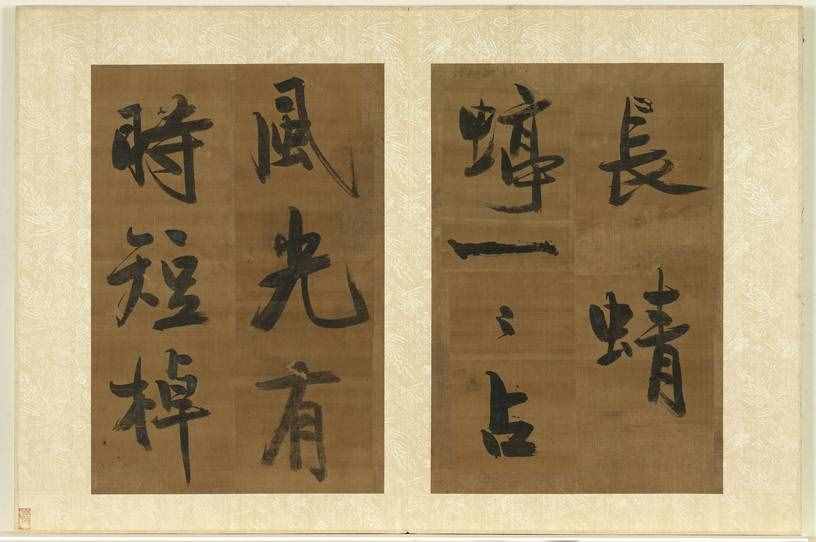 長蜻
蝏一〻占
風光有
時短棹